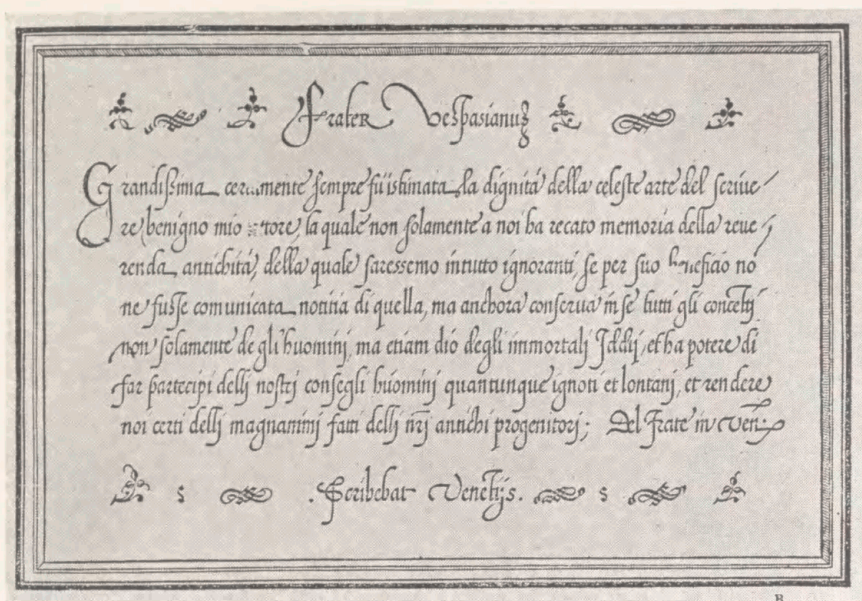 Frater Vespasianus
Grandissima certamente sempre fu istimata la dignità della celeste arte del scriue/
re, benigno mio lettore, la quale non solamente a noi ha recato memoria della reue/
renda antichità, della quale saressemo in tutto ignoranti, se per suo beneficio nō
ne fusse comunicata notitia di quella, ma anchora conserua in se tutti gli concetti
non solamente de gli huominj, ma etiam dio degli immortalj Iddij, et ha potere di
far partecipi dellj nostrj consegli huominj quantunque ignoti et lontanj, et rendere
noi certi dellj magnanimj fatti dellj nr̄j antichi progenitorj; Al Frate in Ven:
s .Scribebat Venetijs. s
B